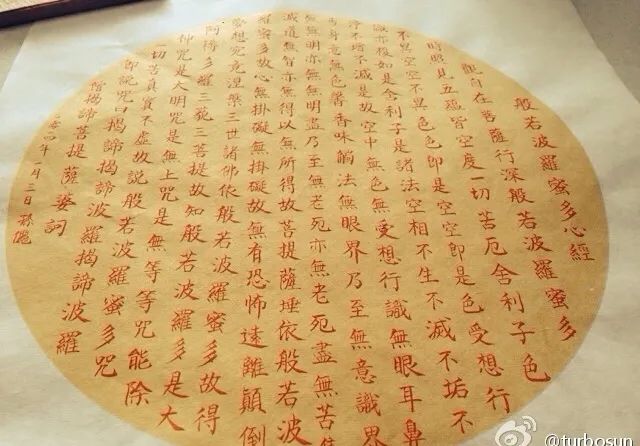 般若波羅蜜多心經
觀自在菩薩行深般若波羅蜜多
時照見五蘊皆空度一切苦厄舍利子色
不異空空不異色色即是空空即是色受想行
識亦復如是舍利子是諸法空相不生不滅不垢不
淨不增不減是故空中無色無受想行識無眼耳鼻
舌身意無色聲香味觸法無眼界乃至無意識界
無無明亦無無明盡乃至無老死亦無老死盡無苦集
滅道無智亦無得以無所得故菩提薩埵依般若波
羅蜜多故心無掛礙無掛礙故無有恐怖遠離顛倒
夢想究竟涅槃三世諸佛依般若波羅蜜多故得
阿耨多羅三藐三菩提故知般若波羅蜜多是大
神咒是大明咒是無上咒是無等等咒能除
一切苦真實不虛故說般若波羅蜜多咒
即說咒曰揭諦揭諦波羅揭諦波羅
僧揭諦菩提薩婆訶
二〇一四年一月三日孫儷
@turbosun